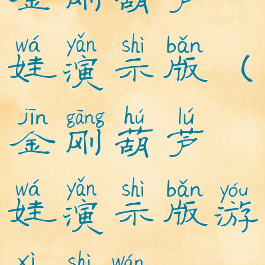 金刚葫芦
wá yǎn shì bǎn
娃演示版（
jīn gāng hú lú
金刚葫芦
wá yǎn shì bǎn yóu
娃演示版游
xì shì wán